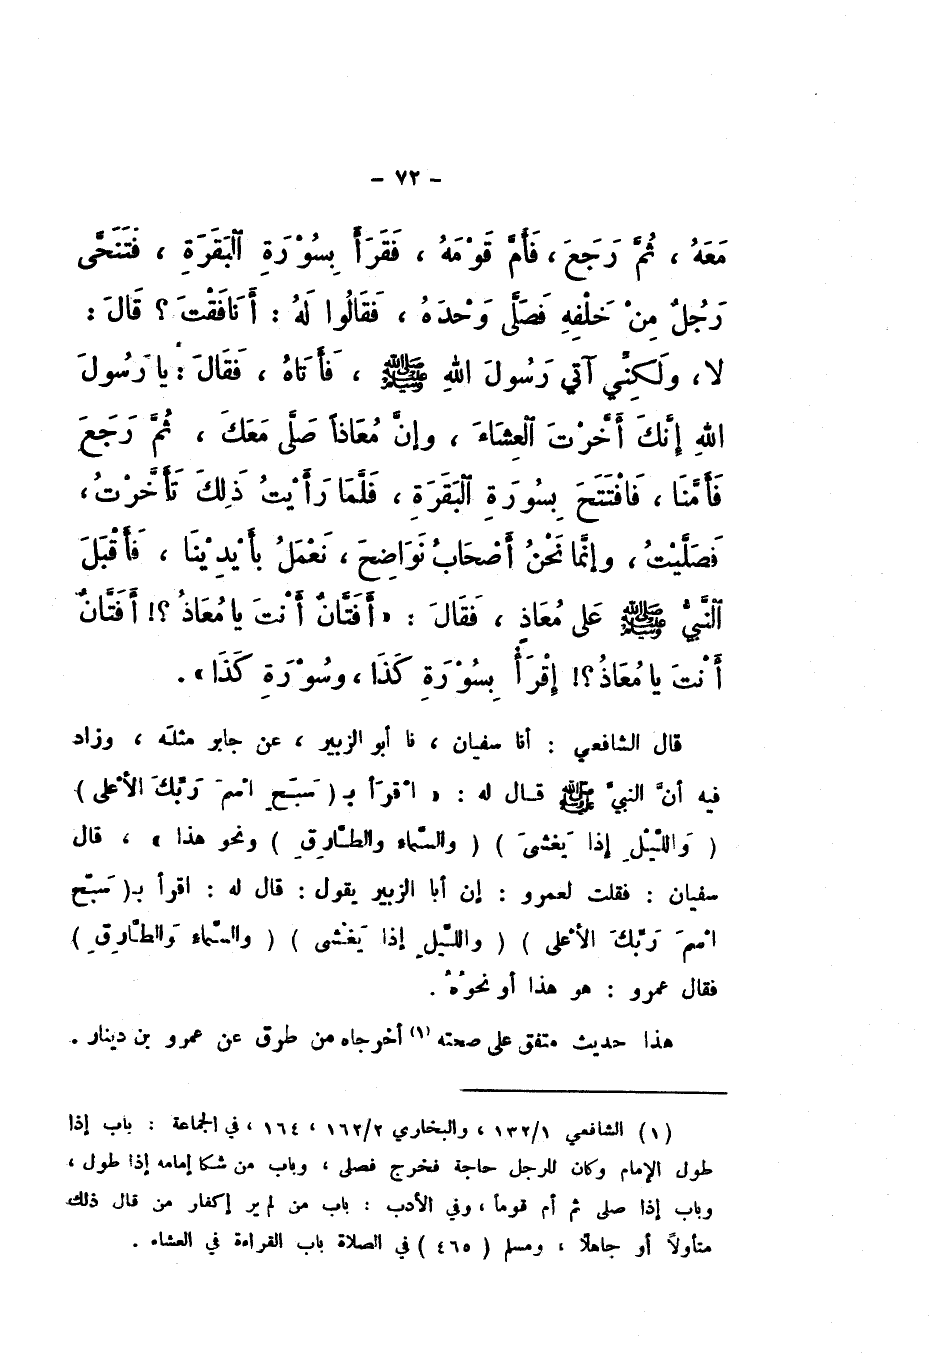 - ٧٢ -
مَعَهُ ، ثُمَّ رَجَعَ ، فَأَمَّ قَوْمَهُ ، فَقَرَأَ بِسُوْرَةِ ٱلبَقَرَةِ ، فَتَنَحَّى
رَجُلٌ مِنْ خَلْفِهِ فَصَلَّى وَحْدَهُ ، فَقَالُوا لَهُ : أَنَافَقْتَ ؟ قَالَ :
لا ، ولَكِنِّي آتي رَسُولَ اللهِ ﷺ ، فَأَتَاهُ ، فَقَالَ : يا رَسُولَ
اللهِ إِنَّكَ أَخَّرْتَ ٱلعِشَاءَ ، وإنَّ مُعَاذاً صَلَّى مَعَكَ ، ثُمَّ رَجَعَ
فَأَمَّنَا ، فَافْتَتَحَ بِسُورَةِ ٱلبَقَرَةِ ، فَلَمَّا رَأَيْتُ ذلِكَ تَأَخَّرْتُ ،
فَصَلَّيْتُ ، وإنَّما نَحْنُ أَصْحَابُ نَوَاضِحَ ، نَعْمَلُ بأَيْدِيْنَا ، فَأَقْبَلَ
ٱلنَّبيُّ ﷺ عَلى مُعَاذٍ ، فَقَالَ : « أَفَتَّانٌ أَنْتَ يا مُعَاذُ ؟! أَفَتَّانٌ
أَنْتَ يا مُعَاذُ ؟! إِقْرَأْ بِسُوْرَةِ كَذَا ، وسُوْرَةِ كَذَا » .
قال الشافعي : أنا سفيان ، نا أبو الزبير ، عن جابر مثلَه ، وزاد
فيه أنَّ النبيَّ ﷺ قال له : « اقْرَأ بـ ( سَبِّحِ اسْمَ رَبِّكَ الأَعْلى )
( وَاللَّيْلِ إِذا يَغْشىَ ) ( والسَّماءِ والطَّارِقِ ) ونحو هذا » ، قال
سفيان : فقلت لعمرو : إن أبا الزبير يقول : قال له : اقرأ بـ ( سَبِّحِ
اسْمَ رَبِّكَ الأَعْلى ) ( واللَّيلِ إذا يَغْشى ) ( والسَّماءِ وَالطَّارِقِ )
فقال عمرو : هو هذا أو نحوُهُ .
هذا حديث متفق على صحته (١) أخرجاه من طرق عن عمرو بن دينار .
(١) الشافعي ١٣٢/١ ، والبخاري ١٦٢/٢ ، ١٦٤ ، في الجماعة : باب إذا
طول الإمام وكان للرجل حاجة فخرج فصلى ، وباب من شكا إمامه إذا طول ،
وباب إذا صلى ثم أم قوماً ، وفي الأدب : باب من لم ير إكفار من قال ذلك
متأولاً أو جاهلًا ، ومسلم ( ٤٦٥ ) في الصلاة باب القراءة في العشاء .